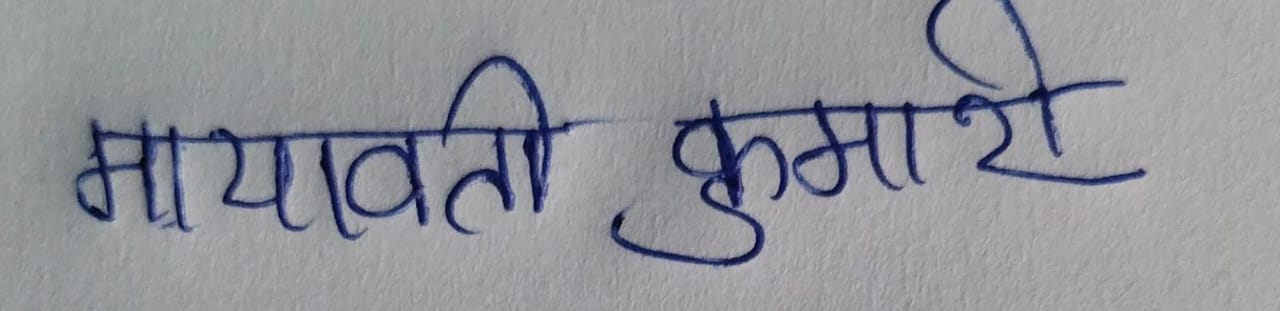 मायावती कुमारी